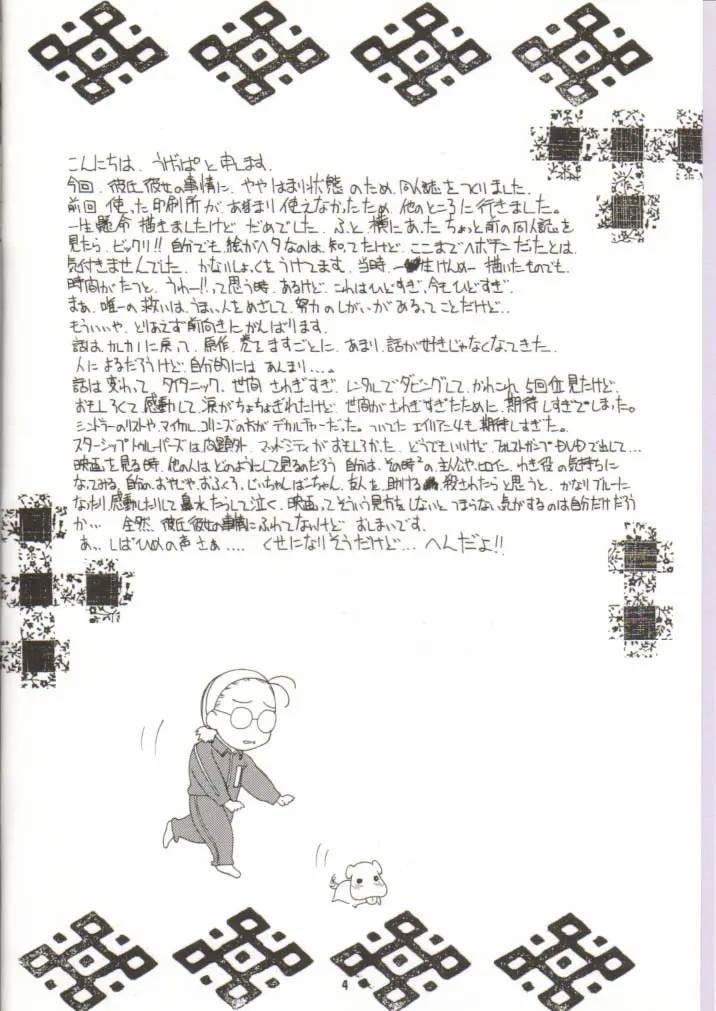 こんにちは、うげっぱと申します。
今回、彼氏彼女の事情に、ややはまり状態のため、同人誌をつくりました。
前回使った印刷所が、あまり使えなかったため、他のところに行きました。
一生懸命描きましたけど、だめでした。ふと横にあった、ちょっと前の同人誌を
見たら、ビックリ!!自分でも絵がヘタなのは、知ってたけど、ここまでヘボチンだったとは、
気付きませんでした。かなりしょっくをうけてます。当時、一生けんめー描いたものでも、
時間がたつと、うわー!!って思う時、あるけど、これはひどすぎ、今もひどすぎ。
まあ、唯一の救いは、うまい人をめざして、努力のしがいがあるってことだけど…
もういいや、とりあえず前向きにがんばります。
話はカレカノに戻って、原作、巻をますごとに、あまり、話が好きじゃなくなってきた。
人によるだろうけど、自分的には、あんまり…。
話は変わって、タイタニック、世間、さわぎすぎ、レンタルでダビングして、かれこれ5回位見たけど、
おもしろくて感動して、涙がちょちょぎれたけど、世間がさわぎすぎたために、期待しすぎでしまった。
シンドラーのリストや、マイケル・コリンズの方が、デカルチャーだった。ついでに、エイリアン4も期待しすぎた。
スターシップトゥルーパーズは問題外、マッドシティがおもしろかった。どうでもいいけど、フォレストガンプDVDで出して…
映画を見る時、他の人は、どのようにして見るのだろう。自分は、その時々の主人公や、ヒロイン、わき役の気持ちに
なってみる。自分のおやじや、おふくろ、じいちゃんばーちゃん、友人を、助ける、殺されたらと思うと、かなりブルーに
なったり、感動したりして、鼻水たらして泣く。映画ってそういう見方をしないと、つまらない気がするのは自分だけだろう
か… 全然、彼氏彼女の事情にふれてないけど、おしまいです。
あっ、しばひめの声さぁ… くせになりそうだけど… へんだよ!!
4